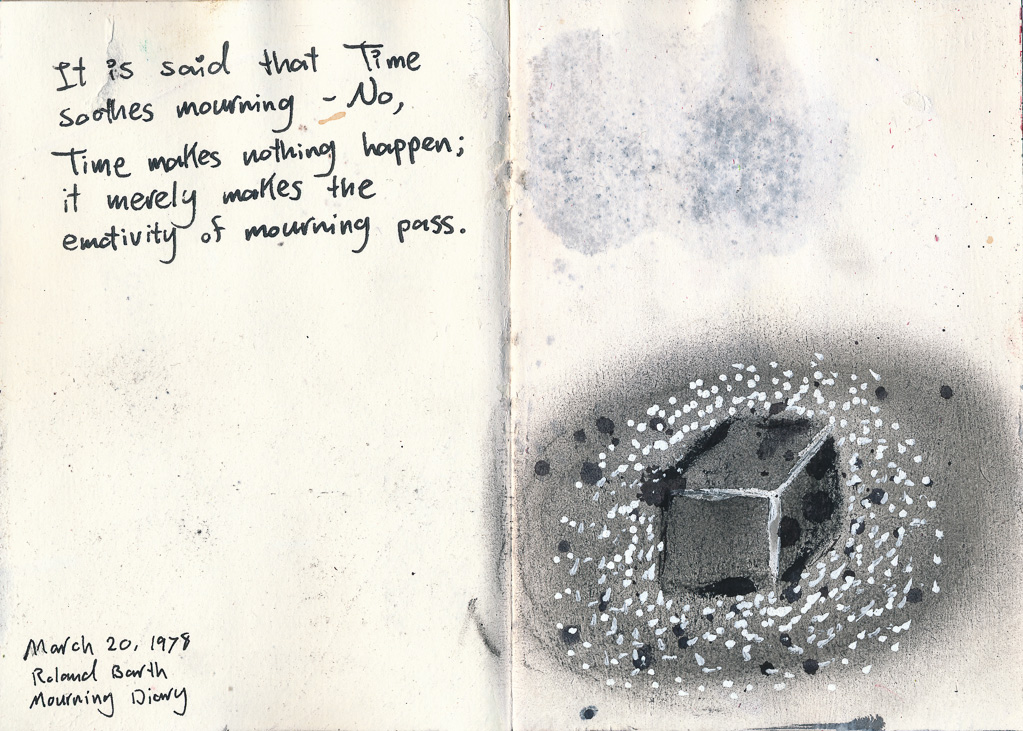 It is said that Time
soothes mourning – No,
Time makes nothing happen;
it merely makes the
emotivity of mourning pass.
March 20, 1978
Roland Barth
Mourning Diary